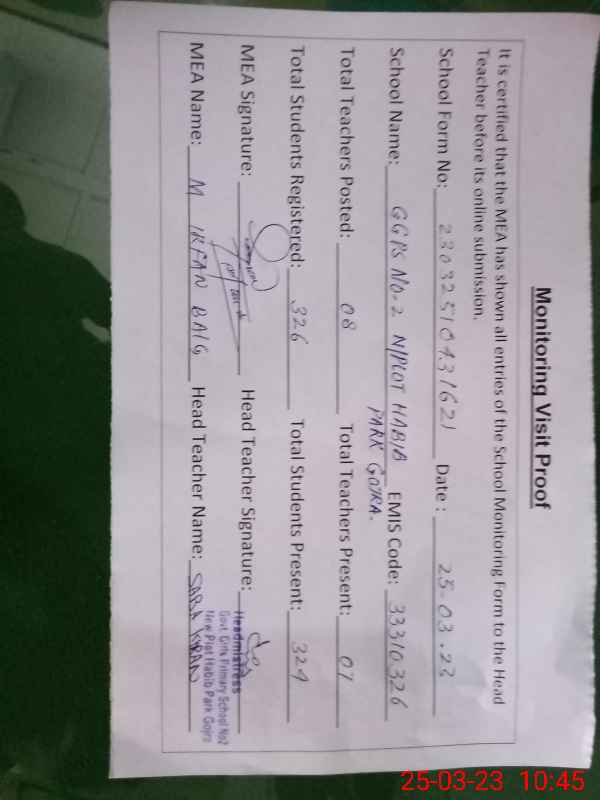 Monitoring Visit Proof
It is certified that the MEA has shown all entries of the School Monitoring Form to the Head
Teacher before its online submission.
School Form No: 23032510431621 Date : 25-03.23
School Name: GGPS NO-2 N/PLOT HABIB EMIS Code: 33310326
PARK GOJRA.
Total Teachers Posted: 08 Total Teachers Present: 07
Total Students Registered: 326 Total Students Present: 324
MEA Signature: Head Teacher Signature:
MEA Name: M IRFAN BAIG Head Teacher Name: KIRAN
Headmistress
Govt Girls Primary School No2
New Plot Habib Park Gojra
25-03-23 10:45